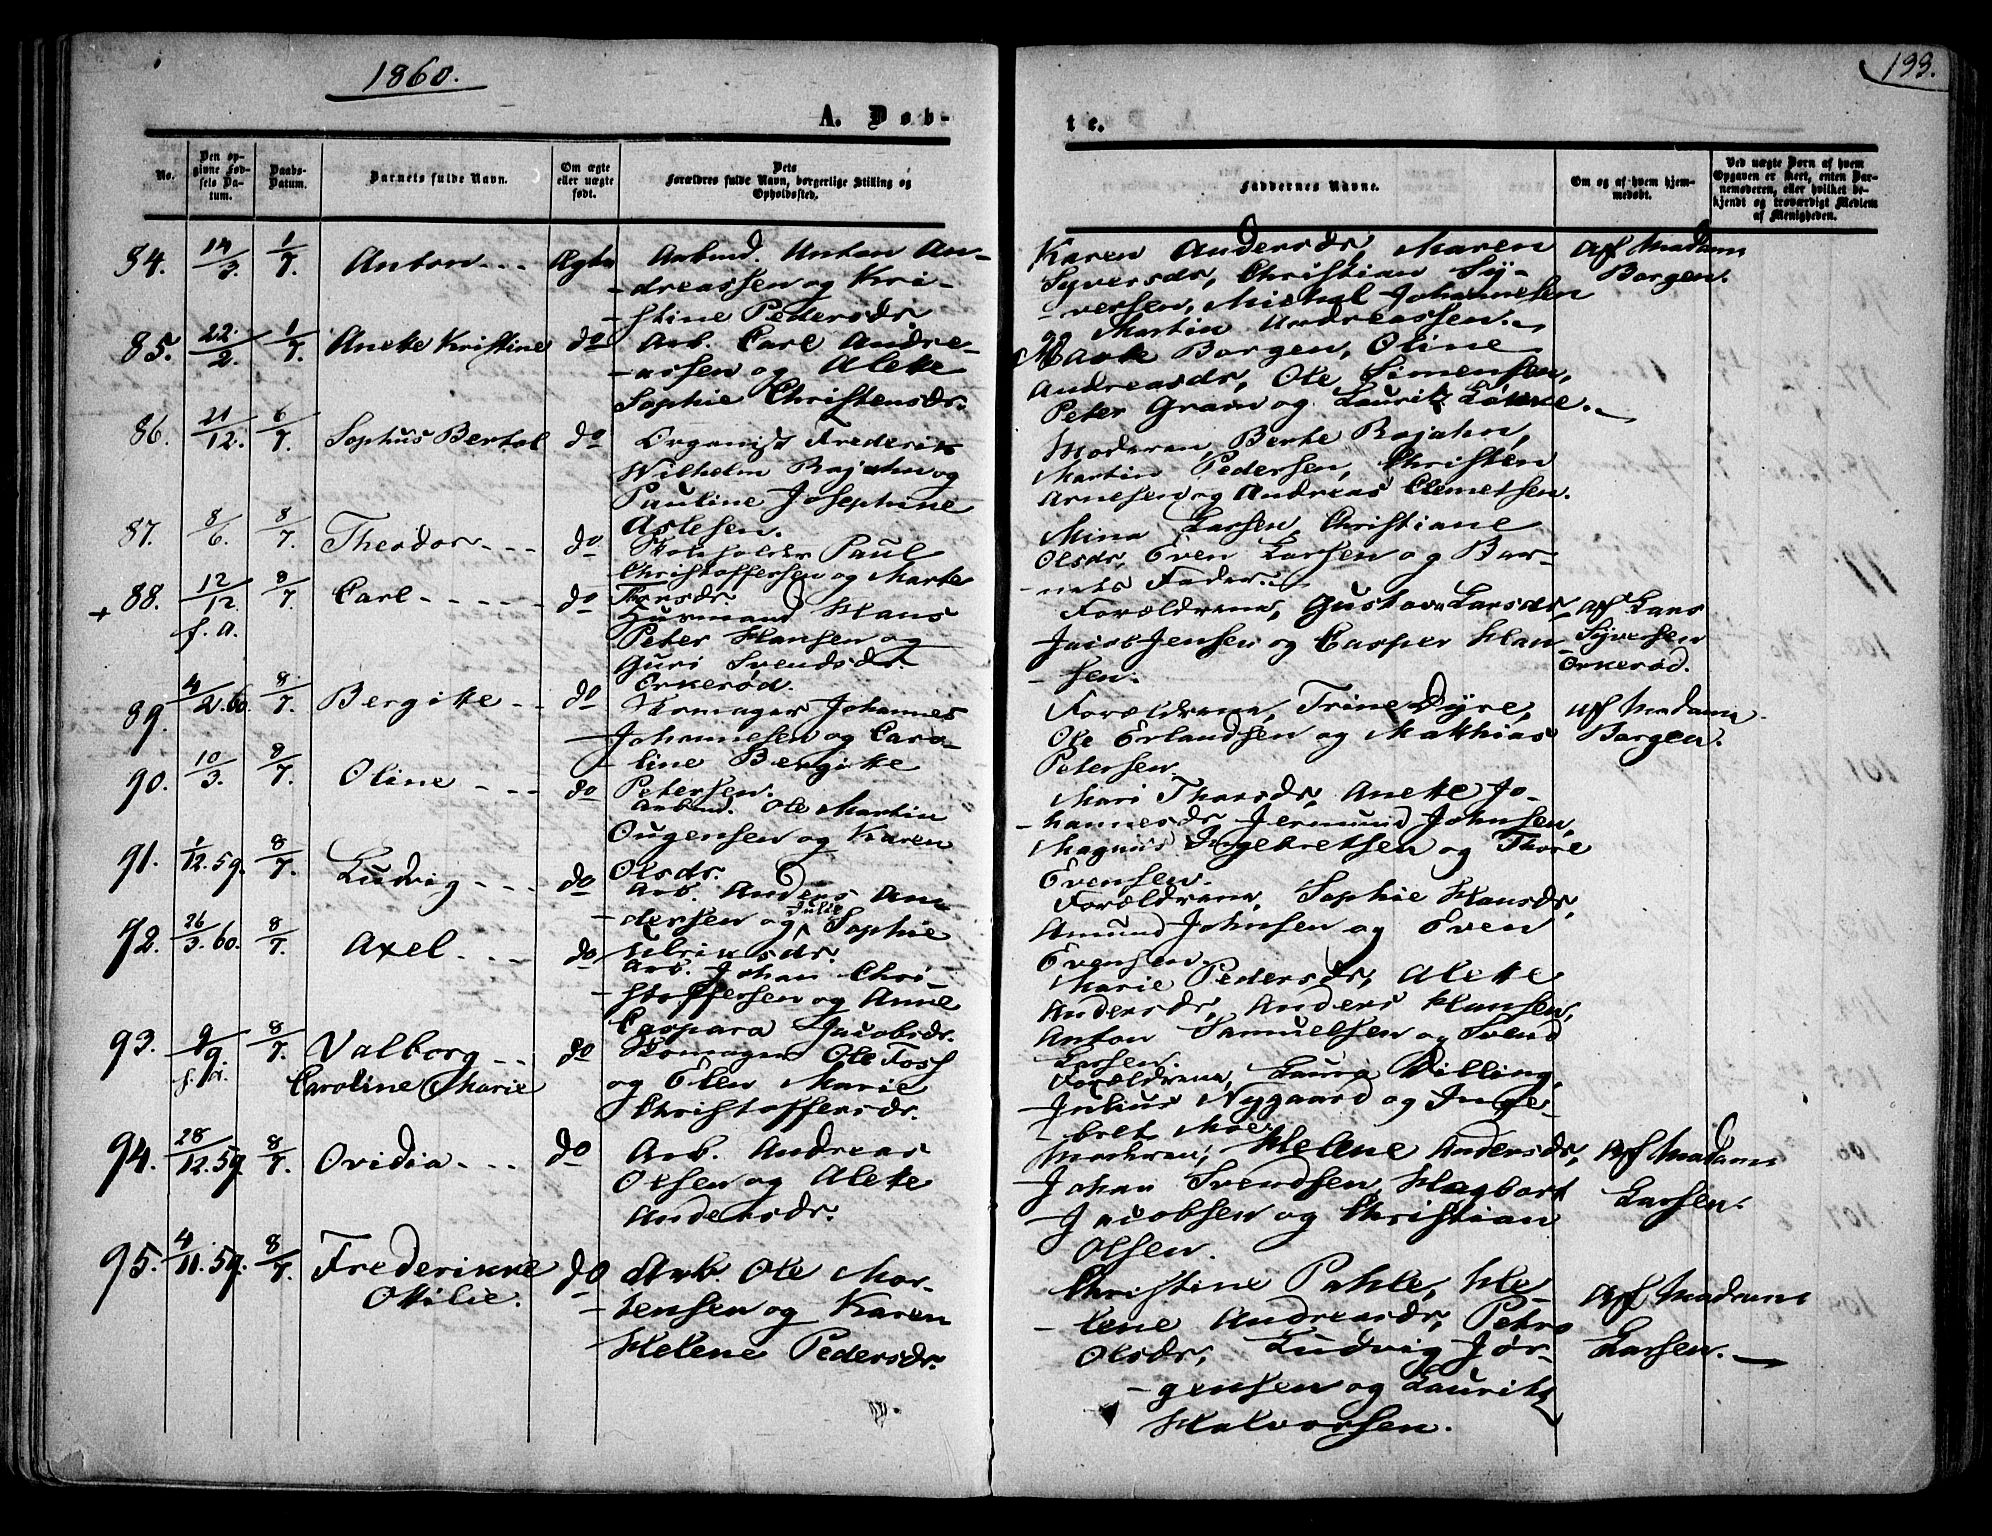 1860.
133.
A. Døb-
te.
No.
Den op-
givne Fød-
sels Da-
tum.
Daabs-
Datum.
Barnets fulde Navn.
Om ægte
eller uægte
født.
Dets
Forældres fulde Navn, borgerlige Stilling og
Opholdssted.
Faddernes Navne.
Om og af hvem hjem-
medøbt.
Ved uægte Børn af hvem
Opgaven er skeet, enten Bar-
nemoderen, eller hvilket be-
kjendt og troværdigt Medlem
af Menigheden.
84. 14/3. 1/7. Anton Ægte Arbmd. Anton An-
dreassen og Kri-
stine Pedersdr.
Karen Andersdr, Maren
Syversdr, Christian Sy-
versen, Michal Johannesen
og Martin Andreassen.
Af Madam
Borgen.
85. 22/2. 1/7. Anette Kristine do Arb. Carl Andre-
assen og Alette
Sophie Christensdr.
Marte Borgen, Oline
Andreasdr, Ole Simensen,
Peter Gram og Lauritz
86. 21/12. 6/7. Sophus Bertol do Organist Frederik
Wilhelm Rojahn og
Pauline Josephine
Aslesen.
Moderen, Berte Rojahn,
Martin Pedersen, Christen
Arnesen og Andreas Clemetsen.
87. 8/6. 8/7. Theodor do Skoleholder Paul
Christoffersen og Marte
Thorsdr.
Mina Larsen, Christiane
Olsdr, Even Larsen og Bar-
nets Fader.
+ 88. 12/12 f. a. 8/7. Carl do Husmand Hans
Peter Hansen og
Guri Svendsdr
Erkerød.
Forældrene, Gustava Larsdr,
Jacob Jensen og Casper Han-
sen.
af Lars
Syversen
Erkerød.
89. 4/2.60. 8/7. Bergitte do Skomager Johannes
Johannesen og Caro-
line Bergitte
Petersen.
Forældrene, Trine Dyre,
Ole Erlandsen og Matthias
Petersen.
af Madame
Borgen.
90. 10/3. 8/7. Oline do Arbmd. Ole Martin
Ougensen og Karen
Olsdr.
Mari Thorsdr, Anette Jo-
hannesdr, Jermund Johnsen,
Magnus Ingebretsen og Thore
Evensen.
91. 1/12.59. 8/7. Ludvig do Arb. Anders An-
dersen og Julie Sophie
Ulriksdr.
Forældrene, Sophie Hansdr,
Amund Johnsen og Even
Evensen.
92. 26/3.60. 8/7. Axel do Arb. Johan Chri-
stoffersen og Anne
Caspara Jacobsdr.
Marie Pedersdr, Alette
Andersdr, Anders Hansen,
Anton Samuelsen og Svend
Larsen.
93. 9/9. 8/7. Valborg
Caroline Marie do Skomager Ole Foss
og Elen Marie
Christoffersdr.
Forældrene, Laura Dilling,
Julius Nygaard og Inge-
bret Moe.
94. 28/12.59 8/7. Ovidia do Arb. Andreas
Olsen og Alette
Andersdr.
Modren, Helene Andersdr,
Johan Svendsen, Hagbart
Jacobsen og Christian
Olsen.
Af Madam
Larsen.
95. 4/11.59. 8/7. Frederikke
Otilie. do Arb. Ole Mor-
tensen og Karen
Helene Pedersdr.
Christine Pahle, He-
lene Andreasdr, Petra
Olsdr, Ludvig Jør-
gensen og Lauritz
Halvorsen.
Af Madam
Larsen.